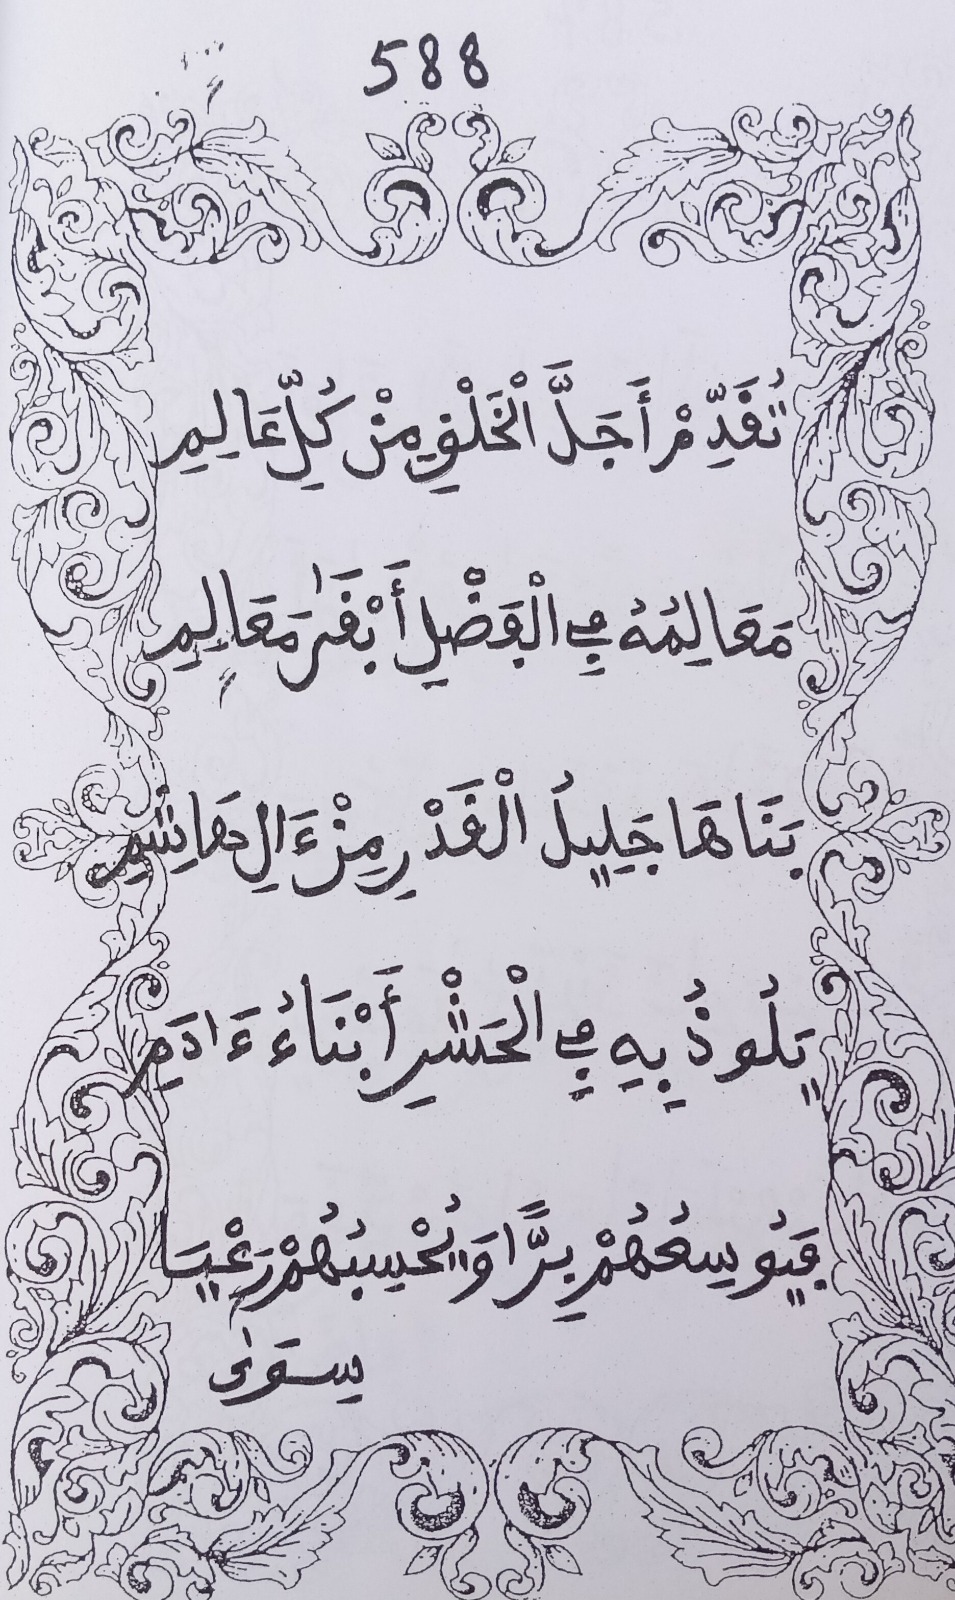 588
تُقَدِّمْ أَجَلَّ الْخَلْقِ مِنْ كُلِّ عَالِمِ
مَعَالِمُهُ فِي الْفَضْلِ أَبْقَىٰ مَعَالِمِ
بَنَاهَا جَلِيلُ الْقَدْرِ مِنْ ءَالِ هَاشِمِ
يَلُوذُ بِهِ فِي الْحَشْرِ أَبْنَاءُ ءَادَمِ
فَيُوسِعُهُمْ بِرًّا وَيُحْسِبُهُمْ رَعْيَا
سوى